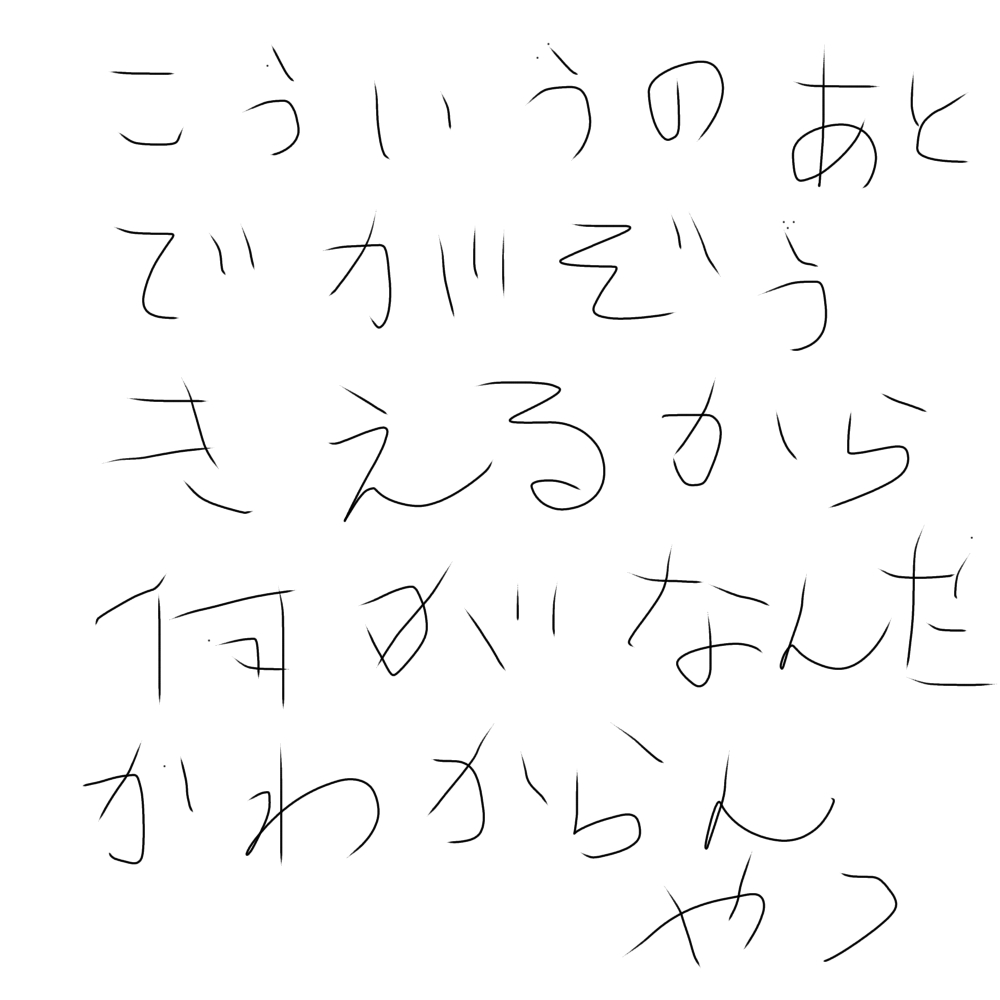 こういうのあと
でがぞう
さえるから
何がなんだ
かわからん
やつ